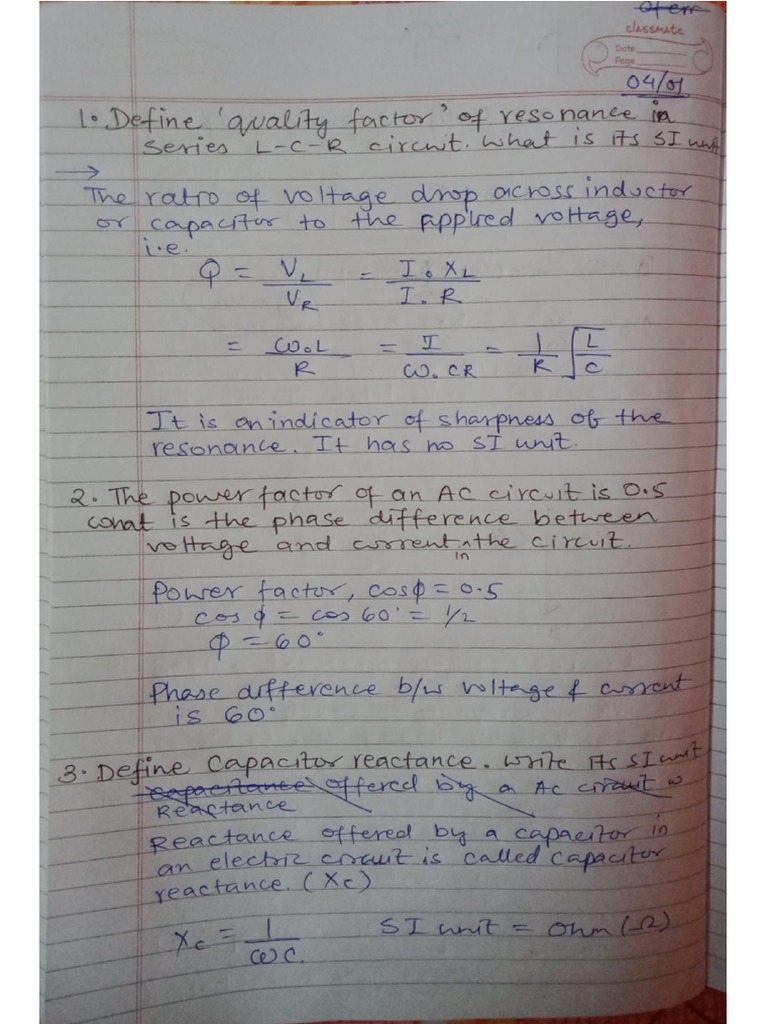 classmate
Date
Page
04/01
1. Define 'quality factor' of resonance in
series L-C-R circuit. What is its SI unit
→
The ratio of voltage drop across inductor
or capacitor to the applied voltage,
i.e.
Q = V_L / V_R = I₀ X_L / I₀ R
= ω₀L / R = I / ω₀ CR = 1/R √(L/C)
It is an indicator of sharpness of the
resonance. It has no SI unit.
2. The power factor of an AC circuit is 0.5
what is the phase difference between
voltage and current in the circuit.
Power factor, cosφ = 0.5
cos φ = cos 60° = 1/2
φ = 60°
Phase difference b/w voltage & current
is 60°
3. Define Capacitor reactance. Write its SI unit
capacitance offered by a AC circuit w
Reactance
Reactance offered by a capacitor in
an electric circuit is called capacitor
reactance. (Xc)
Xc = 1 / ωC. SI unit = ohm (Ω)